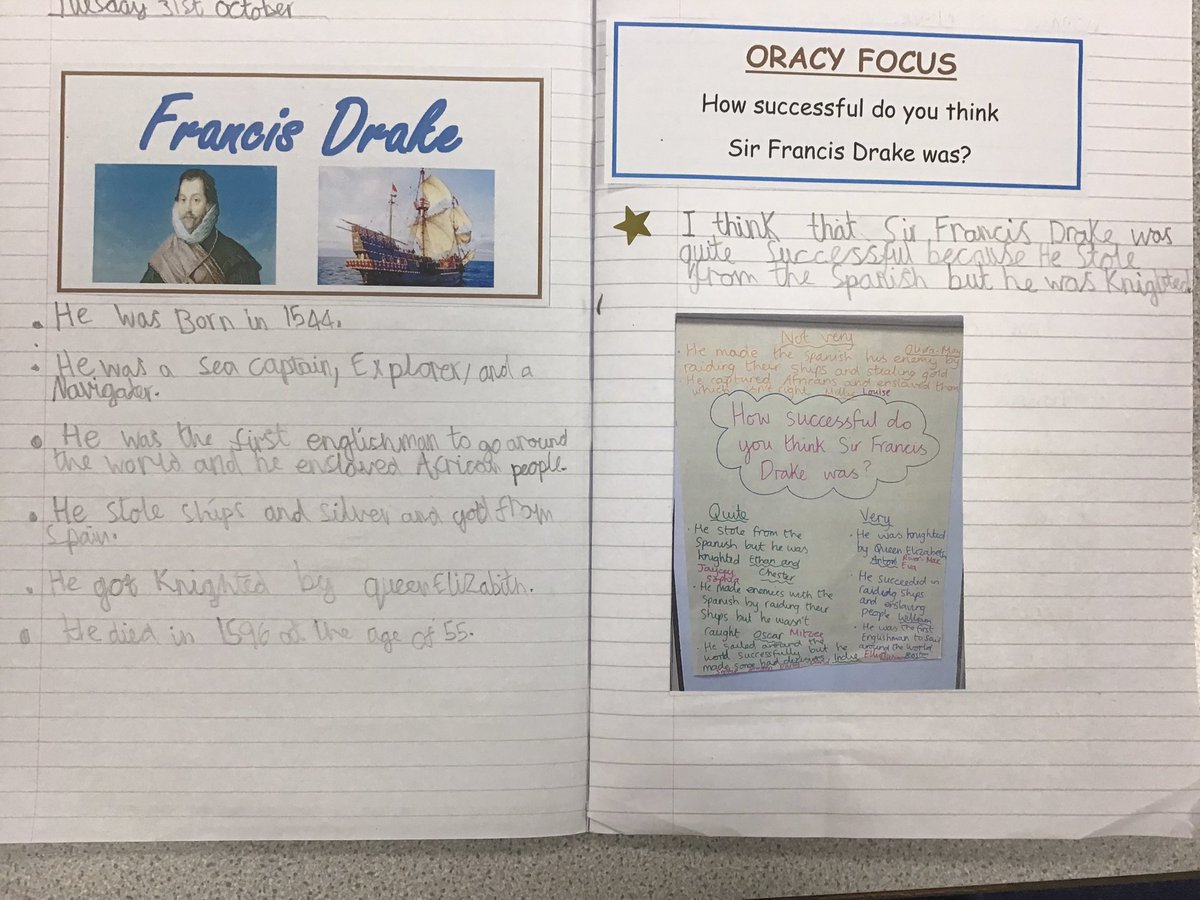 Tuesday 31st October
Francis Drake
He was Born in 1544.
He was a sea captain, Explorer, and a
Navigator.
He was the first englichman to go around
the world and he enslaved African people.
He stole ships and silver and gold from
Spain.
He got Knighted by queen ElizAbith.
He died in 1596 at the age of 55.
ORACY FOCUS
How successful do you think
Sir Francis Drake was?
I think that Sir Francis Drake was
quite successful because He Stole
from the Spanish but he was Knighted
Not very
He made the Spanish his enemy by Olivia-May
raiding their ships and stealing gold
He captured Africans and enslaved them
which isn't right Molly Louise
How successful do
you think Sir Francis
Drake was?
Quite
He stole from the
Spanish but he was
knighted Ethan and
Chester
Sophia
He made enemies with the
Spanish by raiding their
ships but he wasn't
caught Oscar
He sailed around the
world successfully but he
made some bad decisions Indie
Very
He was knighted
by Queen Elizabeth
Anton River-Mae
Eva
He succeeded in
raiding ships
and enslaving
people William
He was the first
Englishman to sail
around the world